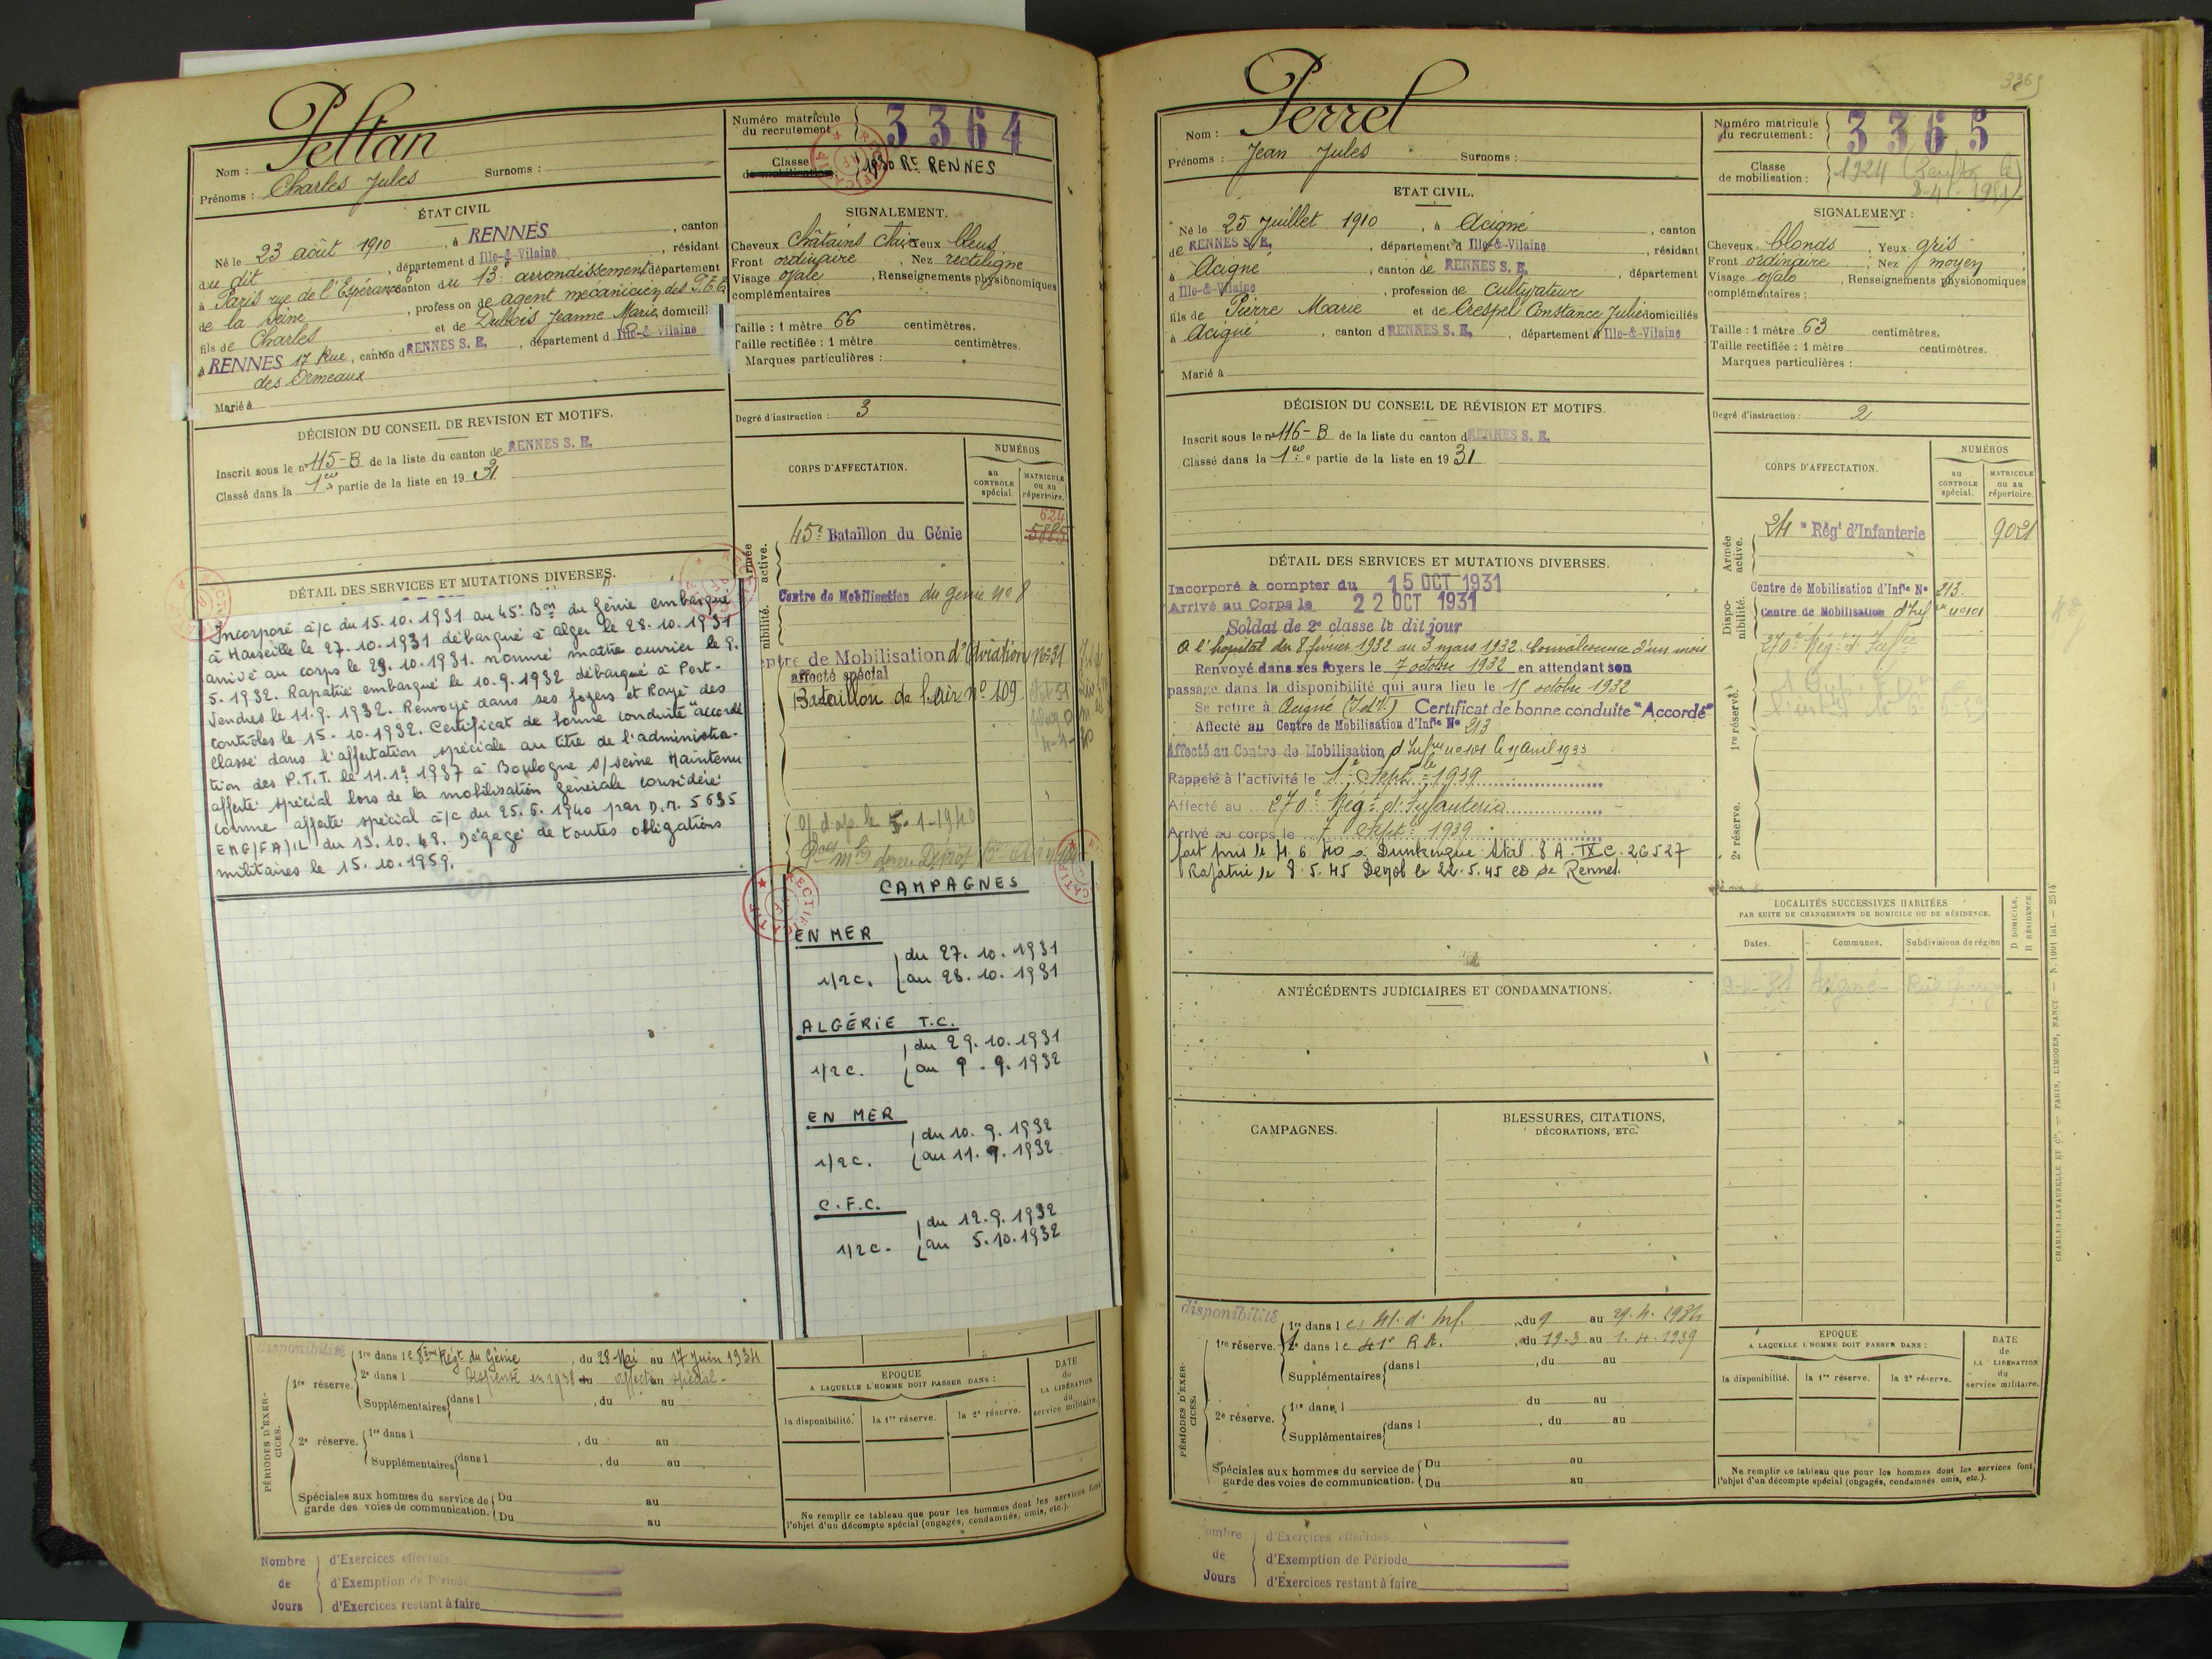 Peltan
Nom :
Prénoms : Charles Jules Surnoms :
Numéro matricule du recrutement 3364
Classe de mobilisation : 1930 Rt RENNES
ÉTAT CIVIL
Né le 23 août 1910, à RENNES, canton
du dit, département d Ille-&-Vilaine, résidant
à Paris rue de l'Espérance canton du 13e arrondissement département
de la Seine, profession de agent mécanicien des P.T.T.
fils de Charles et de Dubois Jeanne Marie, domiciliés
à RENNES 17 Rue, canton d RENNES S. E., département d Ille-&-Vilaine
des Ormeaux
Marié à
SIGNALEMENT.
Cheveux Châtains clair Yeux bleus
Front ordinaire, Nez rectiligne
Visage ovale, Renseignements physionomiques
complémentaires
Taille : 1 mètre 66 centimètres.
Taille rectifiée : 1 mètre centimètres.
Marques particulières :
Degré d'instruction : 3
DÉCISION DU CONSEIL DE REVISION ET MOTIFS.
Inscrit sous le no 115-B de la liste du canton de RENNES S. E.
Classé dans la 1ere partie de la liste en 19 31
CORPS D'AFFECTATION.
NUMÉROS
au CONTROLE spécial.
MATRICULE ou au répertoire.
Armée active.
45e Bataillon du Génie
624
5885
nibilité.
Centre de Mobilisation du génie no 8
ntre de Mobilisation d'Aviation no 31
affecté spécial
Bataillon de l'air no 109
DÉTAIL DES SERVICES ET MUTATIONS DIVERSES.
Incorporé à/c du 15.10.1931 au 45e Bon du Génie embarqué
à Marseille le 27.10.1931 débarqué à Alger le 28.10.1931
arrivé au corps le 29.10.1931. nommé maître ouvrier le 9.
5.1932. Rapatrié embarqué le 10.9.1932 débarqué à Port-
Vendres le 11.9.1932. Renvoyé dans ses foyers et Rayé des
contrôles le 15.10.1932. Certificat de bonne conduite "accordé"
Classé dans l'affectation spéciale au titre de l'administra-
tion des P.T.T. le 11.12.1937 à Boulogne s/seine Maintenu
affecté spécial lors de la mobilisation générale considéré
comme affecté spécial à/c du 25.6.1940 par D.M. 5635
EMG/FA/1L du 13.10.48. Dégagé de toutes obligations
militaires le 15.10.1959.
CAMPAGNES
EN MER
1/2 c. du 27.10.1931
au 28.10.1931
ALGÉRIE T.C.
1/2 c. du 29.10.1931
au 9.9.1932
EN MER
1/2 c. du 10.9.1932
au 11.9.1932
C.F.C.
1/2 c. du 12.9.1932
au 5.10.1932
disponibilité
PÉRIODES D'EXERCICES.
1re réserve. 1re dans l e 8ème Régt du Génie, du 28 Mai au 17 Juin 1934
2e dans l Dispensé en 1938 affecton spécial
Supplémentaires dans l, du au
2e réserve. 1re dans l, du au
Supplémentaires dans l, du au
Spéciales aux hommes du service de garde des voies de communication. Du au
Du au
EPOQUE
A LAQUELLE L'HOMME DOIT PASSER DANS :
la disponibilité. la 1re réserve. la 2e réserve.
DATE de LA LIBÉRATION du service militaire.
Ne remplir ce tableau que pour les hommes dont les services font
l'objet d'un décompte spécial (engagés, condamnés, omis, etc.).
Nombre de Jours
d'Exercices effectués
d'Exemption de Période
d'Exercices restant à faire
3365
Nom : Perrel
Prénoms : Jean Jules Surnoms :
Numéro matricule du recrutement : 3365
Classe de mobilisation : 1924
ETAT CIVIL.
Né le 25 Juillet 1910, à Acigné, canton
de RENNES S. E., département d Ille-&-Vilaine, résidant
à Acigné, canton de RENNES S. E., département
d Ille-&-Vilaine, profession de cultivateur
fils de Pierre Marie et de Crespel Constance Julie domiciliés
à Acigné, canton d RENNES S. E., département d Ille-&-Vilaine
Marié à
SIGNALEMENT :
Cheveux blonds, Yeux gris
Front ordinaire, Nez moyen
Visage ovale, Renseignements physionomiques
complémentaires :
Taille : 1 mètre 63 centimètres.
Taille rectifiée : 1 mètre centimètres.
Marques particulières :
Degré d'instruction : 2
DÉCISION DU CONSEIL DE RÉVISION ET MOTIFS.
Inscrit sous le no 116-B de la liste du canton d RENNES S. E.
Classé dans la 1ere partie de la liste en 19 31
CORPS D'AFFECTATION.
NUMÉROS
au CONTROLE spécial.
MATRICULE ou au répertoire.
Armée active.
24e Régt d'Infanterie 9021
Disponibilité.
Centre de Mobilisation d'Infie No 213.
Centre de Mobilisation d'Infie no 101
1re réserve.
270e Rég. d'Infie
2e réserve.
DÉTAIL DES SERVICES ET MUTATIONS DIVERSES.
Incorporé à compter du 15 OCT 1931
Arrivé au Corps le 22 OCT 1931
Soldat de 2e classe le dit jour
A l'hopital du 8 février 1932 au 3 mars 1932. Convalescence d'un mois
Renvoyé dans ses foyers le 7 octobre 1932 en attendant son
passage dans la disponibilité qui aura lieu le 15 octobre 1932
Se retire à Acigné (I et V.) Certificat de bonne conduite "Accordé"
Affecté au Centre de Mobilisation d'Infie No 213
Affecté au Centre de Mobilisation d'Infie no 101 le 15 Avril 1933
Rappelé à l'activité le 1er Septbre 1939
Affecté au 270e Régt d'Infanterie
Arrivé au corps le 7 Septbre 1939
fait pris le 4.6.40 à Dunkerque Stal. 8 A. IX C. 26527
Rapatrié le 8.5.45 Démob le 22.5.45 CD de Rennes.
LOCALITÉS SUCCESSIVES HABITÉES
PAR SUITE DE CHANGEMENTS DE DOMICILE OU DE RÉSIDENCE.
Dates. Communes. Subdivisions de région
D DOMICILE, R RÉSIDENCE.
ANTÉCÉDENTS JUDICIAIRES ET CONDAMNATIONS.
CAMPAGNES.
BLESSURES, CITATIONS,
DÉCORATIONS, ETC.
disponibilité
PÉRIODES D'EXERCICES.
1re réserve. 1re dans l e 41. d'Inf., du 9 au 29.4.1934
2e dans l e 41e R.I., du 12.3 au 1.4.1939
Supplémentaires dans l, du au
2e réserve. 1re dans l du au
Supplémentaires dans l, du au
Spéciales aux hommes du service de garde des voies de communication. Du au
Du au
EPOQUE
A LAQUELLE L'HOMME DOIT PASSER DANS :
la disponibilité. la 1re réserve. la 2e réserve.
DATE de LA LIBÉRATION du service militaire.
Ne remplir ce tableau que pour les hommes dont les services font
l'objet d'un décompte spécial (engagés, condamnés omis, etc.).
CHARLES-LAVAUZELLE ET Cie — PARIS, LIMOGES, NANCY
ombre de Jours
d'Exercices effectués
d'Exemption de Période
d'Exercices restant à faire